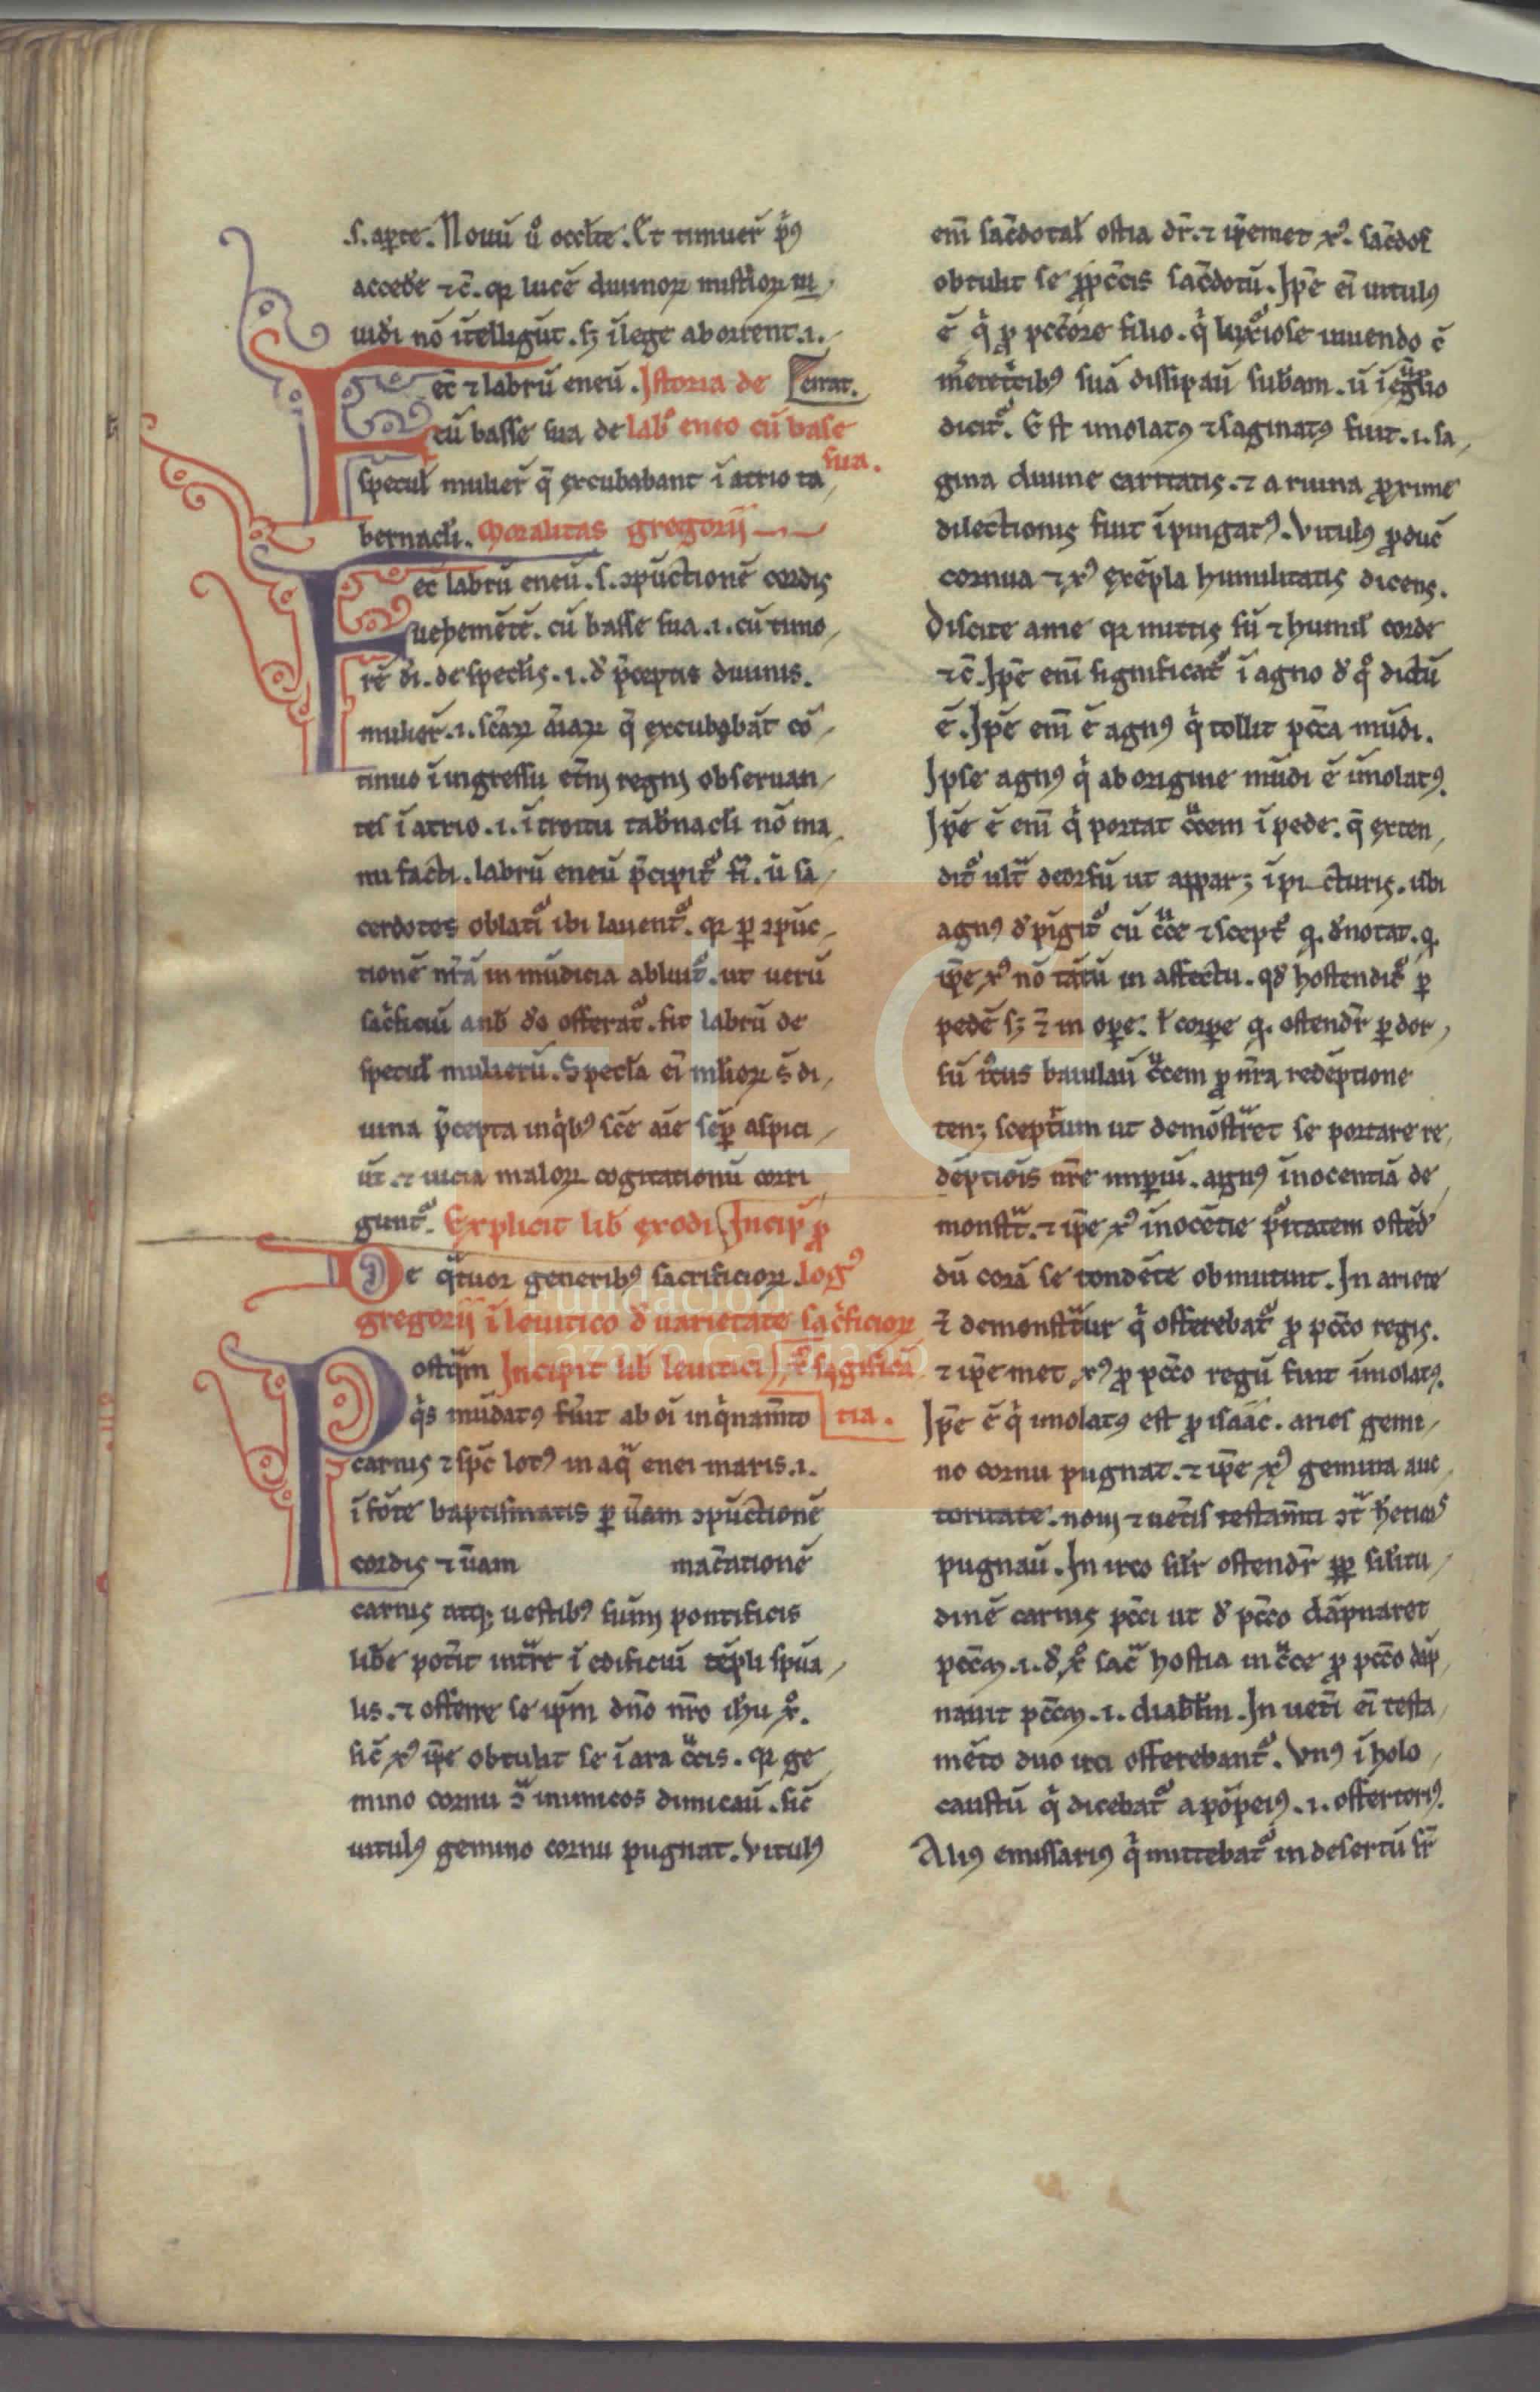 .s. aꝑte. Nouũ ũ occl̃te. Et timuer̃ p̃ꝰ
accedẽ ⁊c̃. qꝛ lucẽ diuinoꝝ mist̃ioꝝ iu,
uiđi nõ ĩtelligũt. sꝫ ĩ lege aborrent .i.
Fec̃ ⁊ labrũ eneũ. Istoria de errat.
cũ basse sua de lab̃ eneo cũ base
sua.
specul̃ mulier̃ q̃ excubabant ĩ atrio ta,
bernacl̃i. Moralitas gregorij
Fec labrũ eneũ. s. ↄpũctionẽ cordis
uehemẽtẽ. cũ basse sua .i. cũ timo,
rẽ đi. de specl̃is .i. đ p̃ceptis diuinis.
mulier̃ .i. sc̃aꝝ ãiaꝝ q̃ excubabãt cõ,
tinuo ĩ ingressu et̃nj regnj obseruan,
tes ĩ atrio .i. ĩtroitu tab̃nacl̃i nõ ma,
nu facti. labrũ eneũ p̃cipit᷑ fi̾. ũ sa,
cerdotes oblat̾i ibi lauent᷑. qꝛ ꝑ ↄpũc,
tionẽ nr̃ã inmũdicia abluit᷑. ut uerũ
sac̾ficiũ anb̃ đo offerat᷑. fit labrũ de
specul̃ mulierũ. Specl̃a ei̾ ml̾ioꝝ s̃ di,
uina p̃cepta inq̾bꝰ sc̃e aĩe sẽꝑ aspici,
ũt. ⁊ uicia maloꝝ cogitationũ corri,
gunt᷑. Explicit lib̃ exodi Incip̃ ꝓ
De q̃tuor generibꝰ sacrificioꝝ. logꝰ
gregorij ĩ leuitico đ uarietate sac̾ficioꝝ
Postq̃m Incipit lib̃ leuitici, ⁊ sagnifica
q̾s mũdatꝰ fũit ab oĩ inq̾nam̃to tia.
carnis ⁊ sp̃c̃ lotꝰ in aq̃ enei maris .i.
ĩ fõte baptismatis ꝑ ũam ↄpũctionẽ
cordis ⁊ ũam mac̃ationẽ
carnis atqꝫ uestibꝰ sum̃j pontificis
lib̃e pot̃it int̃re ĩ edificiũ tẽpli sp̃ua,
lis. ⁊ offerre se ip̃m dño nr̃o ih̃u x̃o.
sic̃ xꝰ ip̃e obtulit se ĩ ara c̃cis. qꝛ ge
mino cornu ↄ̃ inimicos dimicaũ. sic̃
uitulꝰ gemino cornu pugnat. Vitulꝰ
em̃ sac̃dotal̃ ostia dr̃. ⁊ ip̃emet xꝰ. sac̃dos
obtulit se ꝓ pcc̃is sac̃dotũ. Ip̃e ei̾ uitulꝰ
ẽ q̾ ꝓ pcc̃ore filio. q̾ luxo̾iose uiuendo cũ
meretc̾ibꝰ suã dissipaũ sub̃am. ũ ĩ eg̃lio
dicit᷑. Est imolatꝰ ⁊ saginatꝰ fuit .i. sa,
gina diuine caritatis. ⁊ a ruina ꝓxime
dilectionis fuit ĩpingatꝰ. Vitulꝰ ꝓduc̃
cornua ⁊ xꝰ exẽpla humilitatis dicens.
Discite a me qꝛ mittis sũ ⁊ humil̃ corde
⁊c̃. Ip̃e em̃ significat᷑ ĩ agno đ q̊ dictũ
ẽ. Ip̃e em̃ ẽ agnꝰ q̾ tollit pcc̃a mũdi.
Ipse agnꝰ q̾ ab origine mũdi ẽ ĩmolatꝰ.
Ip̃e ẽ em̃ q̾ portat c̃cem ĩ pede. q̃ exten,
dit᷑ ult̃ deorsũ ut apparꝫ ĩ picturis. ubi
agnꝰ đpĩgit᷑ cũ c̃ce ⁊ scept᷑ q. đnotat. q.
ip̃e xꝰ nõ tãtũ in affectu. qđ hostendit᷑ ꝑ
pedẽ sꝫ ⁊̃ in oꝑe. l̃ corꝑe q. ostendr̃ ꝑ dor,
sũ ic̾cus baiulaũ c̃cem ꝓ nr̃a redẽptione
tenꝫ scept̾um ut demõstr̃et se portare re,
dẽptiõis nr̃e imꝑiũ. agnꝰ ĩnocentiã de
monstr̃t. ⁊ ip̃e xꝰ ĩnocẽtie p᷑itatem ostẽđ
dũ corã se tondẽte obmutuit. In ariete
⁊̃ demonstr̃tur q̾ offerebat᷑ ꝓ pcc̃o regis.
⁊ ip̃emet xꝰ ꝓ pcc̃o regũ fuit ĩmolatꝰ.
Ip̃e ẽ q̾ imolatꝰ est ꝓ isaac. aries gemi,
no cornu pugnat. ⁊ ip̃e xꝰ gemina auc,
toritate. nouj ⁊ uet̃is testam̃ti ↄt̃ heticos
pugnaũ. In irco sil̃r ostendr̃ ꝓp̃ silitu,
dinẽ carnis pcc̃i ut đ pcc̃o dãpnaret
pcc̃m .i. đ x̊ sac̃ hostia in c̃ce ꝓ pcc̃o dãp,
nauit pcc̃m .i. diabl̃m. In uet̾i ei̾ testa,
mẽto duo irci offerebant᷑. Vnꝰ ĩ holo,
caustũ q̾ dicebat᷑ apõpeiꝰ .i. offertoriꝰ.
Aliꝰ emissariꝰ q̾ mittebat᷑ in desertũ sr̃